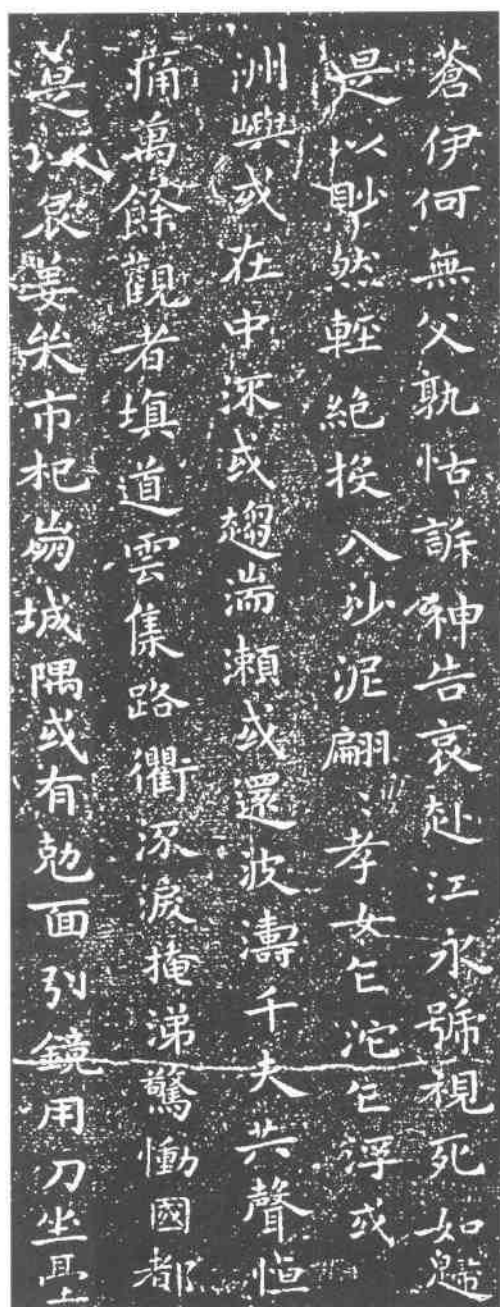 蒼伊何無父孰怙訴神告哀赴江永號視死如歸
是以眇然輕絕投入沙泥翩〻孝女乍沉乍浮或
洲嶼或在中流或趨湍瀨或還波濤千夫共聲悼
痛萬餘觀者填道雲集路衢流淚掩涕驚慟國都
是以哀姜哭市杞崩城隅或有剋面引鏡用刀坐臺